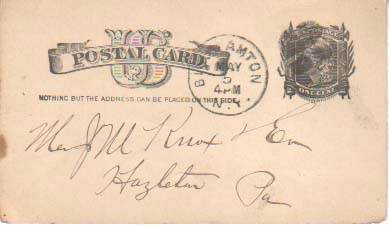 US
POSTAL CARD.
NOTHING BUT THE ADDRESS CAN BE PLACED ON THIS SIDE.
B AMTON
MAY
5
4PM
N.Y.
ONE CENT
J M Knox
Hazleton Pa